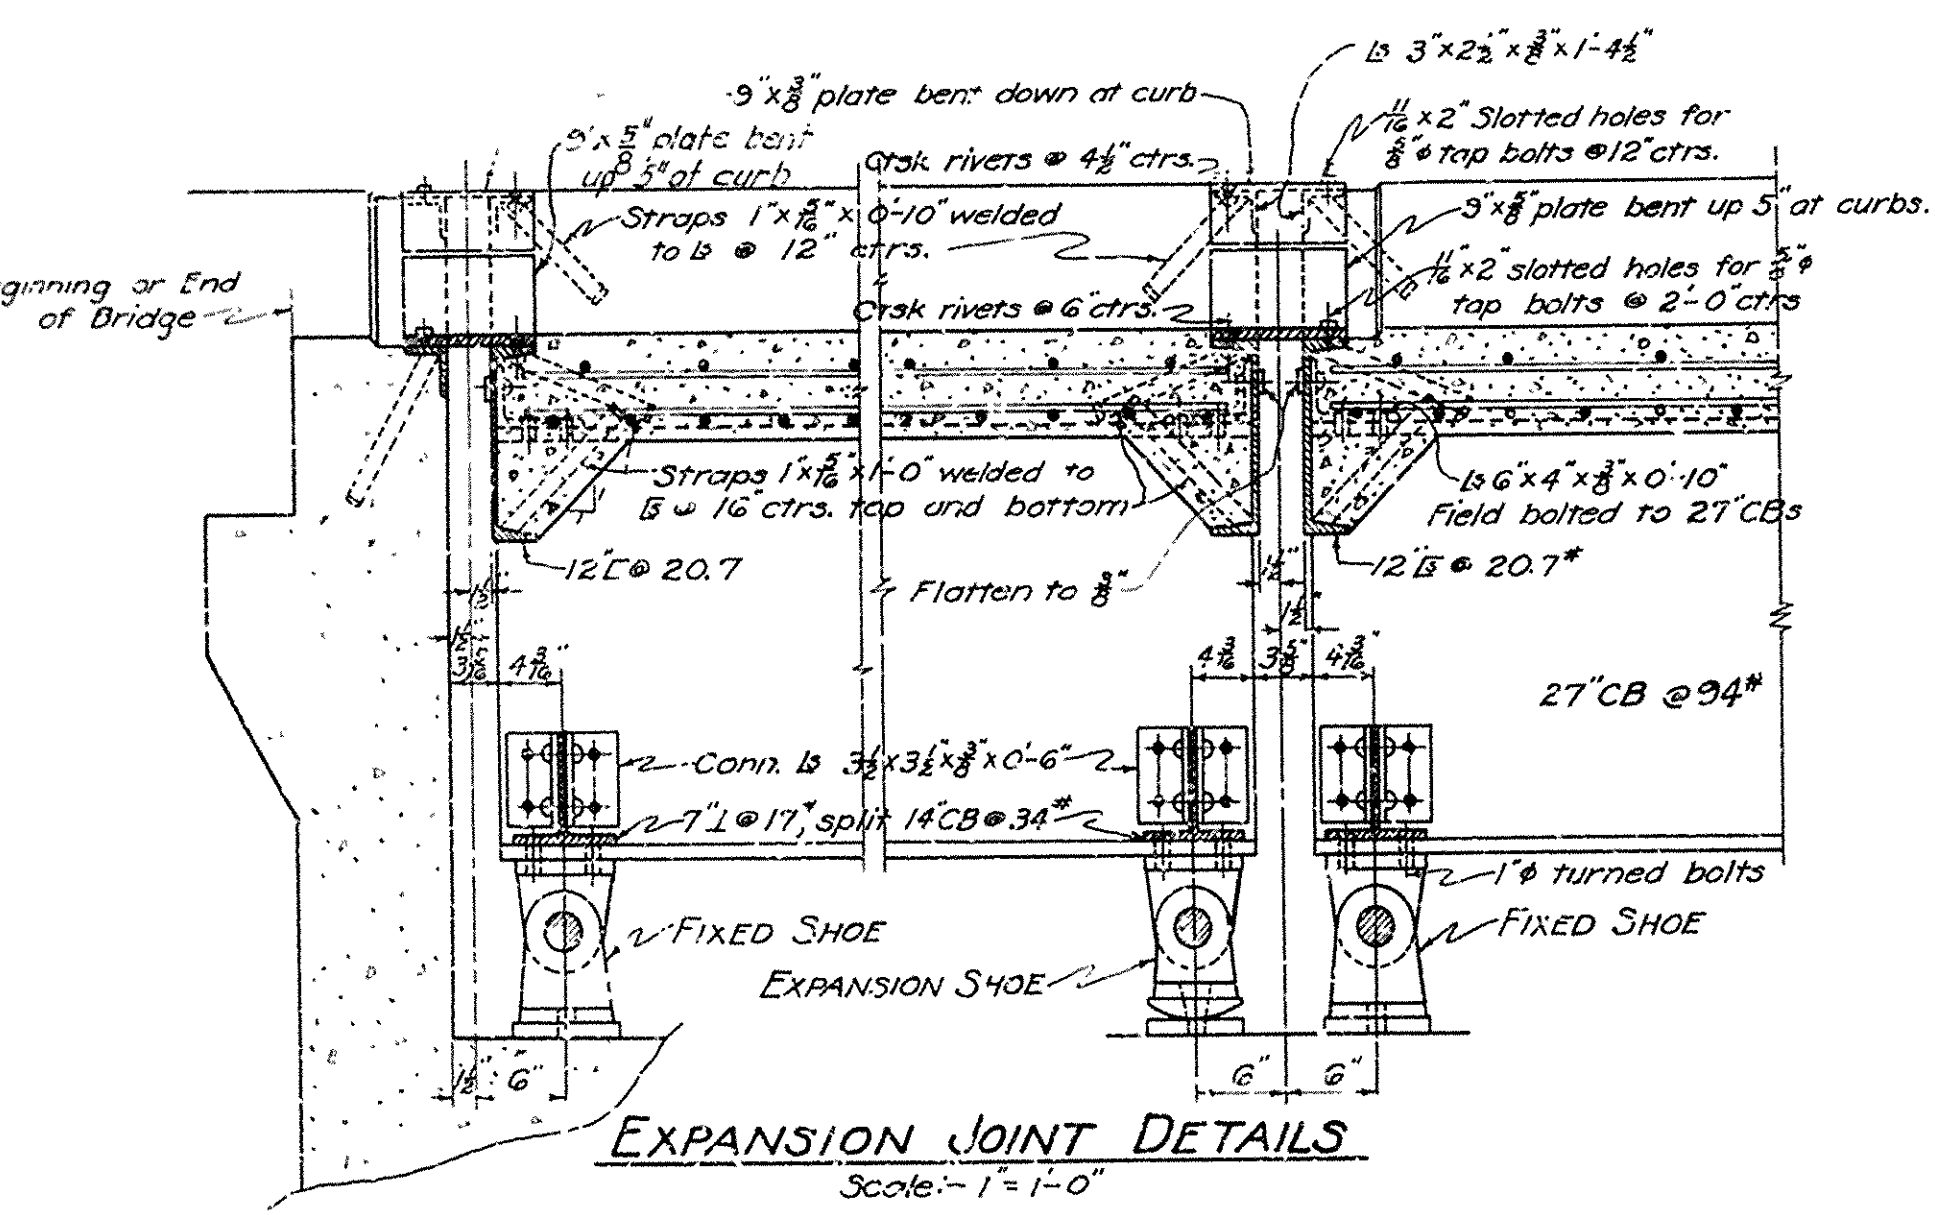 Ls 3"x2½"x⅜"x1'-4½"
9"x⅜" plate bent down at curb
11/16 x2" Slotted holes for
⅝"φ tap bolts @12"ctrs.
9"x⅝" plate bent
up 5" at curb
Ctsk rivets @ 4½" ctrs.
9"x⅝" plate bent up 5" at curbs.
Straps 1"x5/16"x0'-10" welded
to Ls @ 12" ctrs.
11/16"x2" slotted holes for ⅝"φ
tap bolts @ 2'-0" ctrs
ginning or End
of Bridge
Ctsk rivets @ 6" ctrs.
Straps 1"x5/16"x1'-0" welded to
[s @ 16" ctrs. top and bottom
Ls 6"x4"x⅜"x0'-10"
Field bolted to 27"CBs
12"[ @ 20.7
Flatten to ⅜"
12"[s @ 20.7#
1½"
1½"
1½"
1½"
4 3/16"
4 3/16
3⅝"
4 3/16"
27"CB @ 94#
Conn. Ls 3½x3½"x⅜"x0'-6"
7"⊥ @ 17#, split 14"CB @ 34#
1"φ turned bolts
FIXED SHOE
FIXED SHOE
EXPANSION SHOE
1½"
6"
6"
6"
EXPANSION JOINT DETAILS
Scale:- 1" = 1'-0"